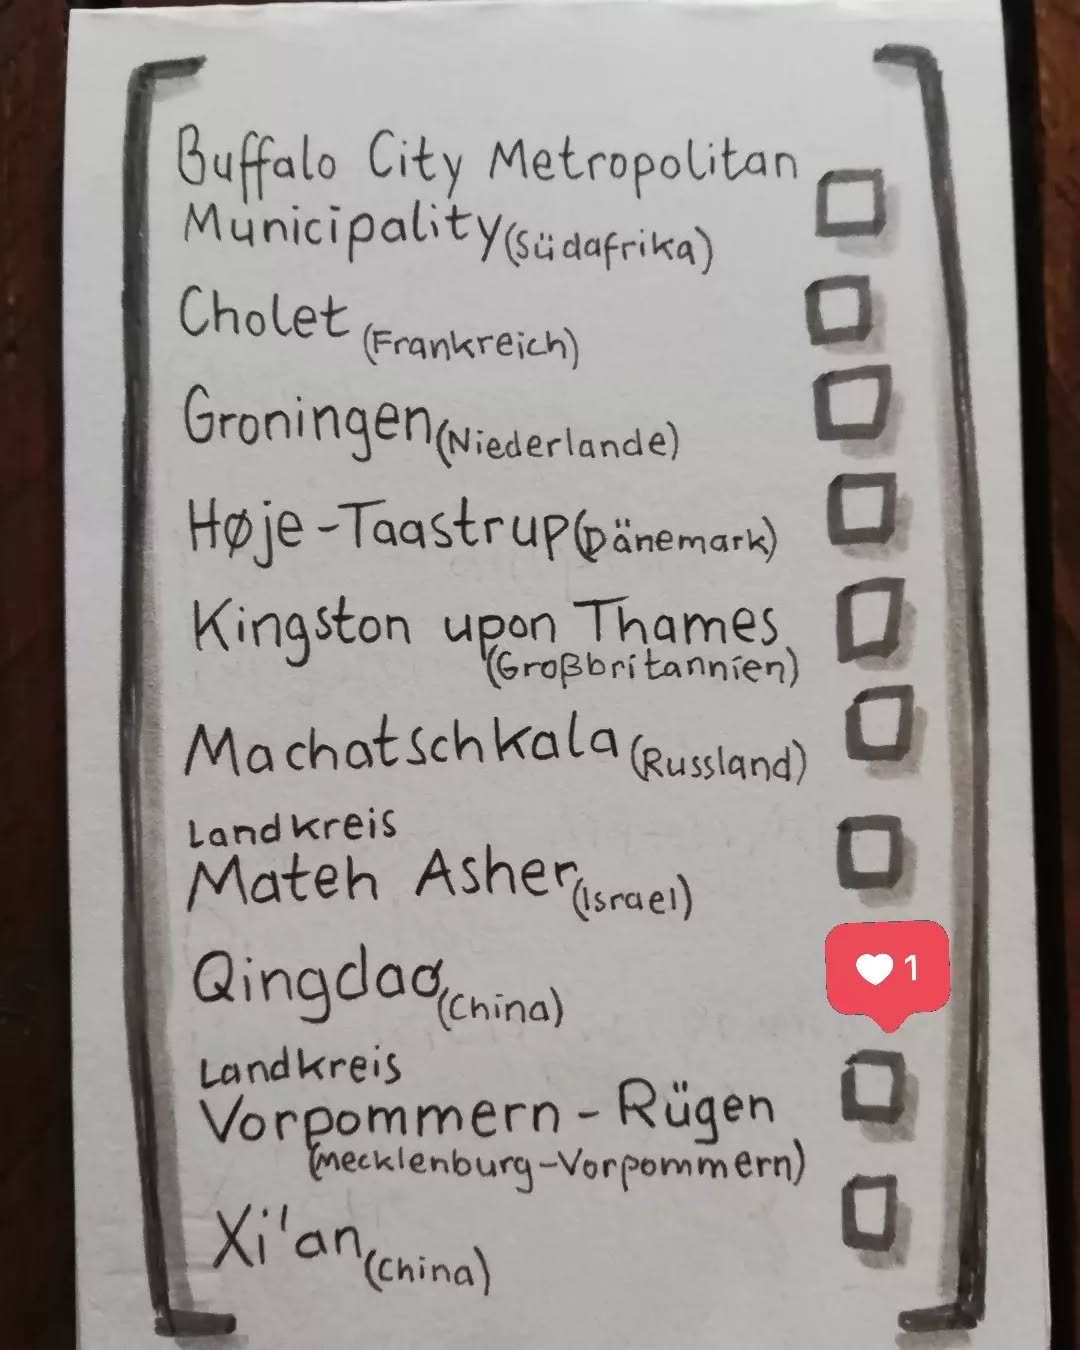 Buffalo City Metropolitan
Municipality (Südafrika)
Cholet (Frankreich)
Groningen (Niederlande)
Høje-Taastrup (Dänemark)
Kingston upon Thames
(Großbritannien)
Machatschkala (Russland)
Landkreis
Mateh Asher (Israel)
Qingdao (China)
1
Landkreis
Vorpommern-Rügen
(Mecklenburg-Vorpommern)
Xi'an (China)